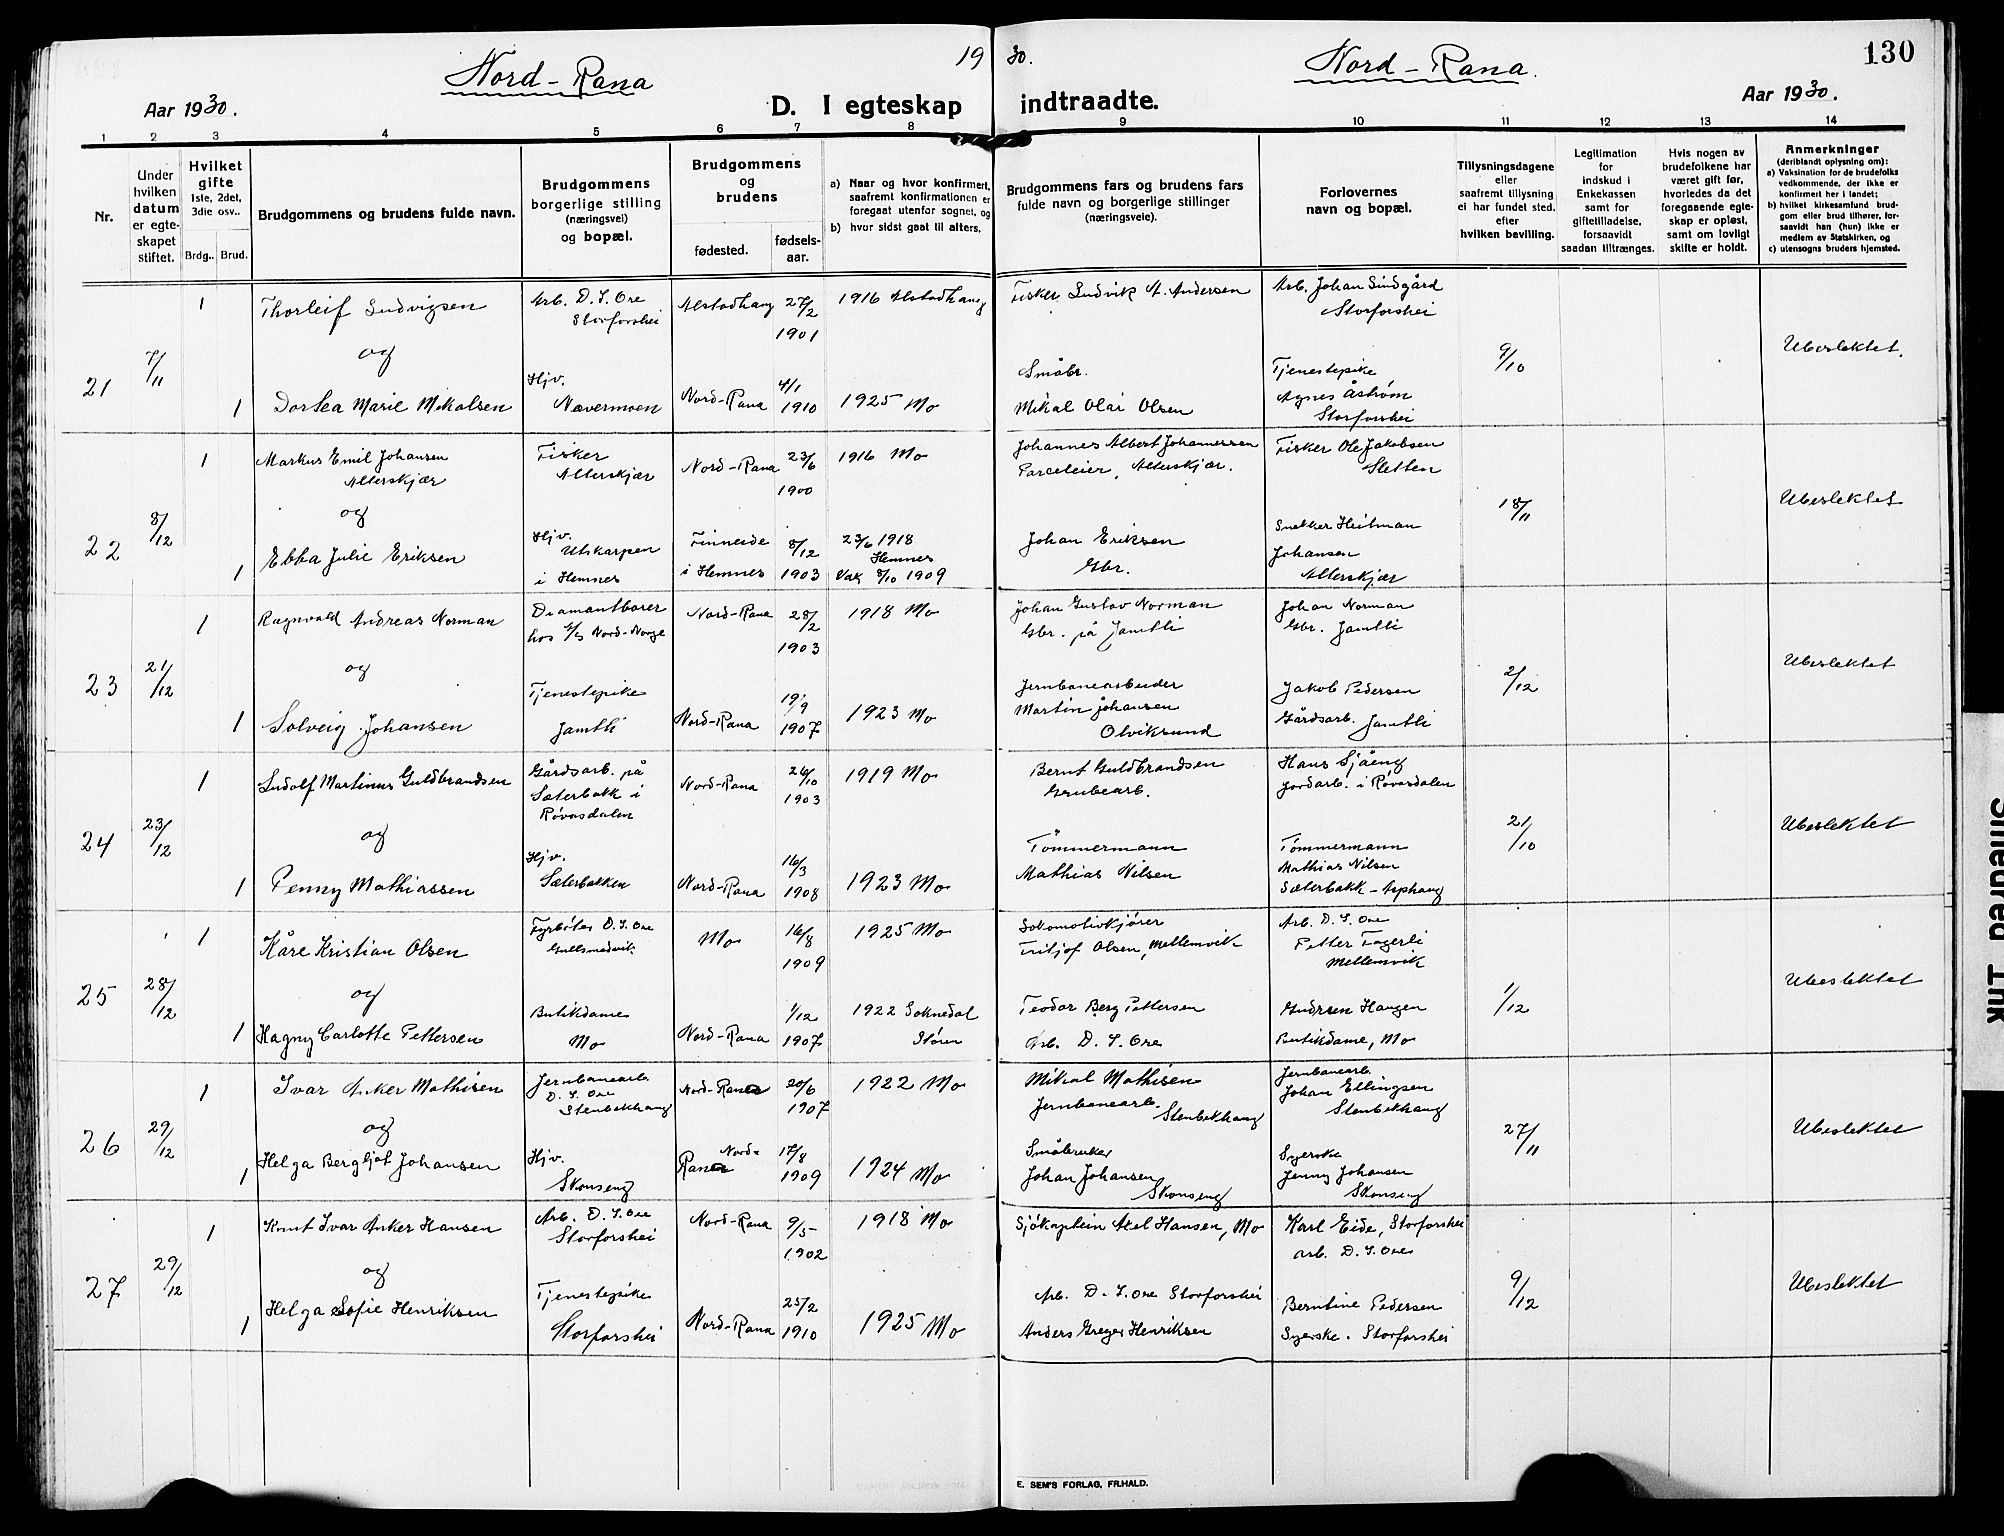 Nord - Rana
19
30.
Nord - Rana.
130
Aar 1930.
D. I egteskap
indtraadte.
Aar 1930.
1 2 3 4 5 6 7 8 9 10 11 12 13 14
Nr.
Under hvilken datum er egteskapet stiftet.
Hvilket gifte 1ste, 2det, 3die osv..
Brdg.. Brud.
Brudgommens og brudens fulde navn.
Brudgommens borgerlige stilling (næringsvei) og bopæl.
Brudgommens og brudens
fødested.
fødsels-aar.
a) Naar og hvor konfirmert, saafremt konfirmationen er foregaat utenfor sognet, og
b) hvor sidst gaat til alters.
Brudgommens fars og brudens fars fulde navn og borgerlige stillinger (næringsveie).
Forlovernes navn og bopæl.
Tillysningsdagene eller saafremt tillysning ei har fundet sted, efter hvilken bevilling.
Legitimation for indskud i Enkekassen samt for giftetilladelse, forsaavidt saadan tiltrænges.
Hvis nogen av brudefolkene har været gift før, hvorledes da det foregaaende egteskap er opløst, samt om lovligt skifte er holdt.
Anmerkninger
(deriblandt oplysning om):
a) Vaksination for de brudefolks vedkommende, der ikke er konfirmert her i landet;
b) hvilket kirkesamfund brudgom eller brud tilhører, forsaavidt han (hun) ikke er medlem av Statskirken, og
c) utensogns bruders hjemsted.
21
7/11
1
Thorleif Ludvigsen
Arb. D. I. Ore
Storforshei
Alstadhaug
27/2
1901
1916 Alstadhaug
Fisker Ludvik A. Andersen
Arb. Johan Lindgård
Storforshei
9/10
Ubeslektet.
og
1
Dortea Marie Mikalsen
Hjv.
Nævermoen
Nord-Rana
4/1
1910
1925 Mo
Småbr.
Mikal Olai Olsen
Tjenestepike
Agnes Åström
Storforshei
22
8/12
1
Markus Emil Johansen
Alterskjær
Fisker
Alterskjær
Nord-Rana
23/6
1900
1916 Mo
Johannes Albert Johannessen
Parceleier, Alterskjær.
Fisker Ole Jakobsen
Sletten
18/11
Ubeslektet
og
1
Ebba Julie Eriksen
Hjv.
Utskarpen
i Hemnes
Finneide
i Hemnes
8/12
1903
23/6 1918
Hemnes
Vax 8/10 1909
Johan Eriksen
Gbr.
Snekker Heitman
Johansen
Alterskjær
23
21/12
1
Ragnvald Andreas Norman
Diamantborer
hos A/S Nord-Norge
Nord-Rana
28/2
1903
1918 Mo
Johan Gustav Norman
Gbr. på Jamtli
Johan Norman
Gbr. Jamtli
2/12
Ubeslektet
og
1
Solveig Johansen
Tjenestepike
Jamtli
Nord-Rana
19/9
1907
1923 Mo
Jernbanearbeider
Martin Johansen
Olviksund
Jakob Pedersen
Gårdsarb. Jamtli
24
23/12
1
Ludolf Martinus Guldbrandsen
Gårdsarb. på
Sæterbakk i
Røvasdalen
Nord-Rana
26/10
1903
1919 Mo
Bernt Guldbrandsen
Grubearb.
Hans Sjåeng
jordarb. i Røvasdalen
21/10
Ubeslektet
og
1
Penny Mathiassen
Hjv.
Sæterbakken
Nord-Rana
16/3
1908
1923 Mo
Tömmermann
Mathias Nilsen
Tömmermann
Mathias Nilsen
Sæterbakk - Asphaug
25
28/12
1
Kåre Kristian Olsen
Fyrbøter D. I. Ore
Gullsmedvik.
Mo
16/8
1909
1925 Mo
Lokomotivkjører
Fritjof Olsen, Mellemvik
Arb. D. I. Ore
Petter Fagerli
Mellemvik
1/12
Ubeslektet
og
1
Hagny Carlotte Pettersen
Butikdame
Mo
Nord-Rana
1/12
1907
1922 Soknedal
Støren
Teodor Berg Pettersen
Arb. D. I. Ore
Gudrun Haugen
Butikdame, Mo
26
29/12
1
Ivar Anker Mathisen
Jernbanearb.
D. I. Ore
Stenbekkhaug
Nord-Rana
20/6
1907
1922 Mo
Mikal Mathisen
Jernbanearb.
Stenbekkhaug
Jernbanearb.
Johan Ellingsen
Stenbekkhaug
27/11
Ubeslektet
og
1
Helga Bergljot Johansen
Hjv.
Skonseng
Nord-
Rana
17/8
1909
1924 Mo
Småbruker
Johan Johansen
Skonseng
Syerske
Jenny Johansen
Skonseng
27
29/12
1
Knut Ivar Anker Hansen
Arb. D. I. Ore
Storforshei
Nord-Rana
9/5
1902
1918 Mo
Sjökaptein Axel Hansen, Mo
Karl Eide, Storforshei
Arb. D. I. Ore
9/12
Ubeslektet
og
1
Helga Sofie Henriksen
Tjenestepike
Storforshei
Nord-Rana
25/2
1910
1925 Mo
Arb. D. I. Ore Storforshei
Anders Greger Henriksen
Berntine Pedersen
Syerske. Storforshei
E. SEM'S FORLAG, FR.HALD.